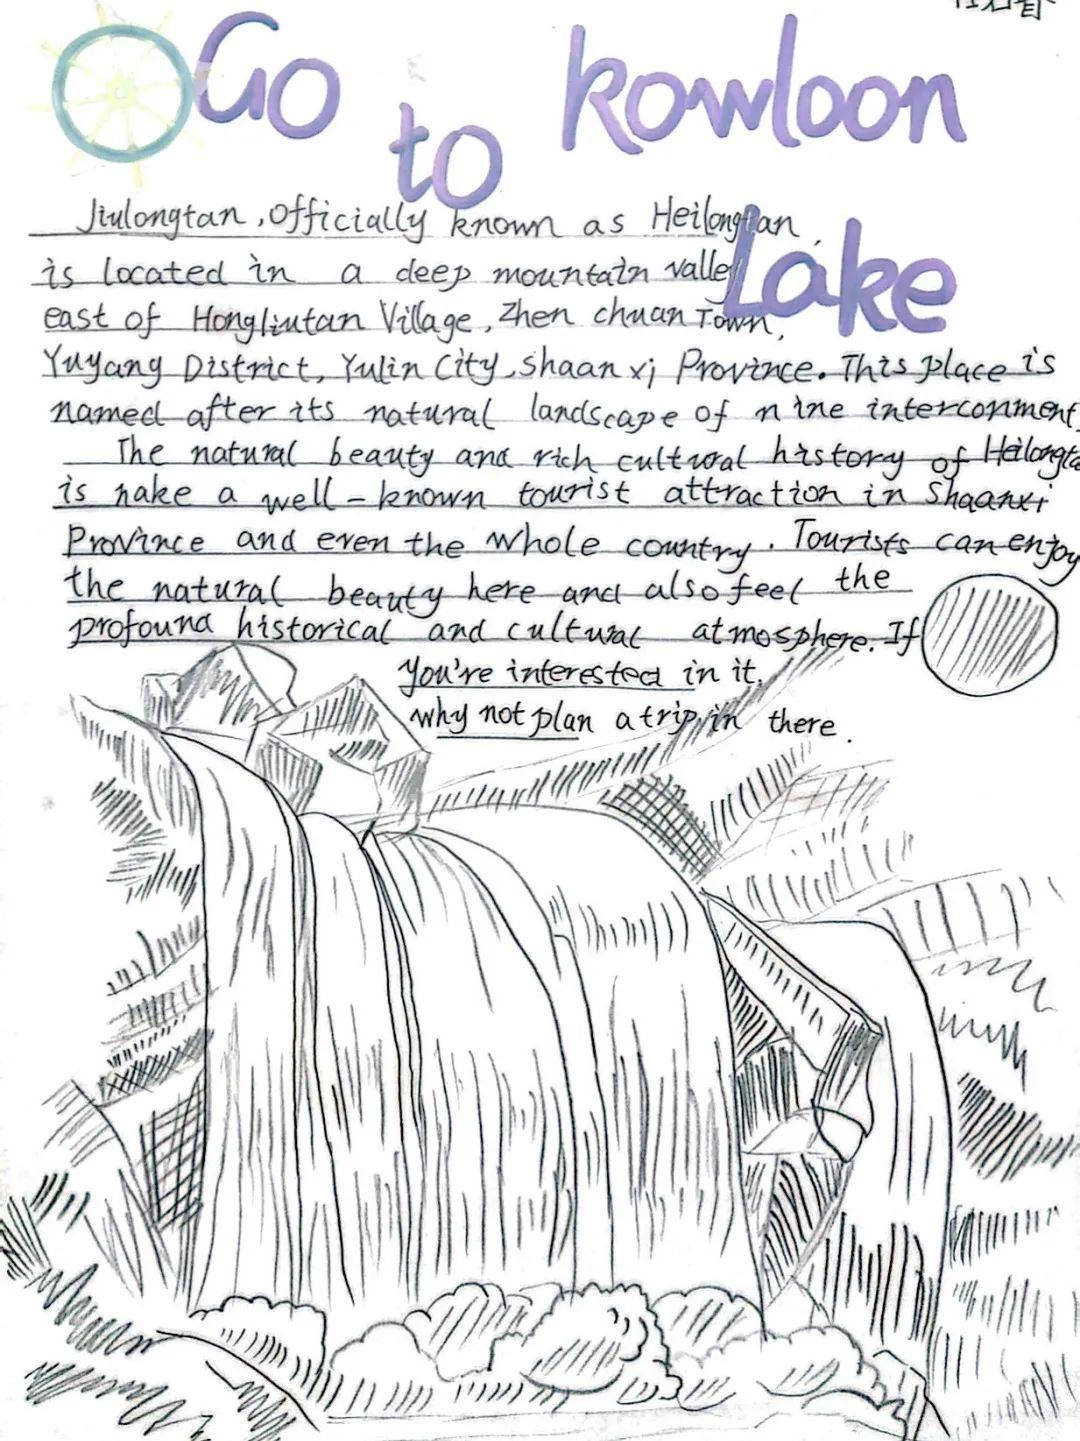 Go
to
kowloon
Lake
Jiulongtan, Officially known as Heilongtan,
is located in a deep mountain valley
east of Hongliutan Village, Zhen chuan Town,
Yuyang District, Yulin City, Shaan xi Province. This place is
named after its natural landscape of nine interconment
The natural beauty and rich cultural history of Heilongta
is nake a well-known tourist attraction in Shaanxi
Province and even the whole country. Tourists can enjoy
the natural beauty here and also feel the
profound historical and cultural atmosphere. If
You're interested in it,
why not plan a trip in there.